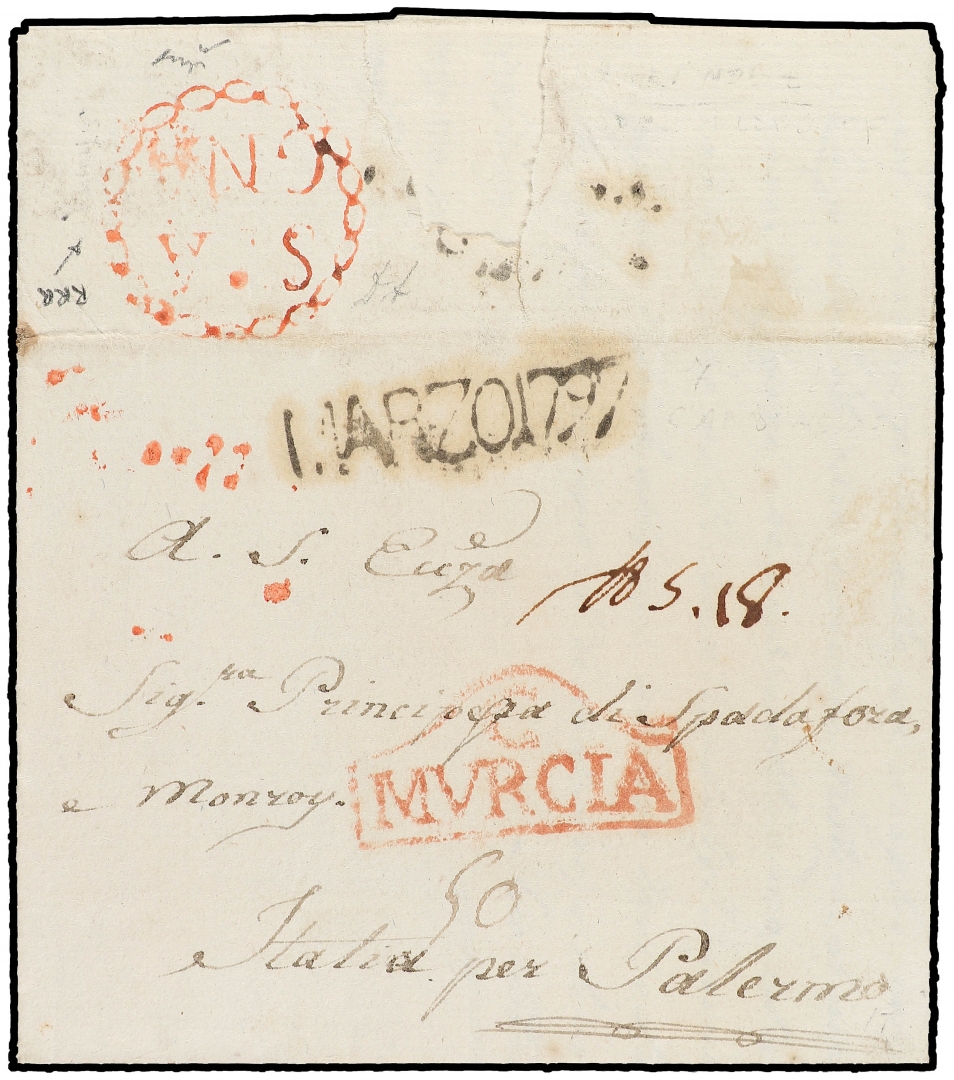 RRR
MARZO 1797
A. S. Ecc.za
S. 18.
Sig.ra Principessa di Spadafora,
C
MVRCIA
e Monroy.
50
Italia per Palermo